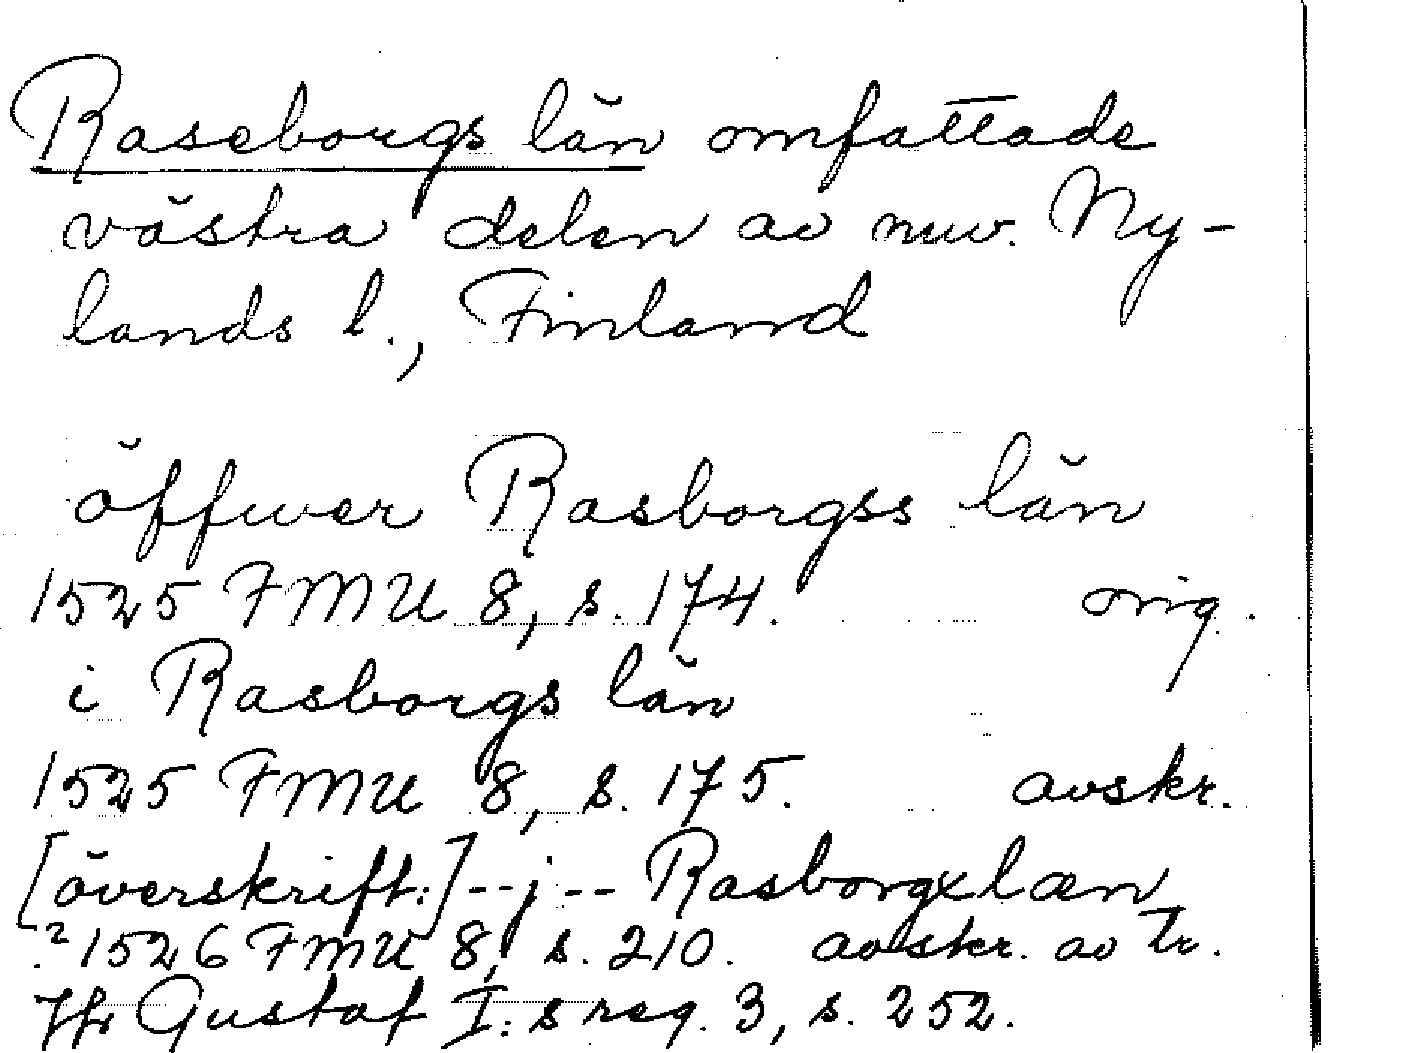 Raseborgs län omfattade
västra delen av nuv. Ny-
lands l., Finland
öffwer Rasborgss län
1525 FMU 8, s. 174. orig.
i Rasborgs län
1525 FMU 8, s. 175. avskr.
[överskrift:] -- j -- Rasborgxlæn
?1526 FMU 8, s. 210. avskr. av tr.
Jfr Gustaf I:s reg. 3, s. 252.